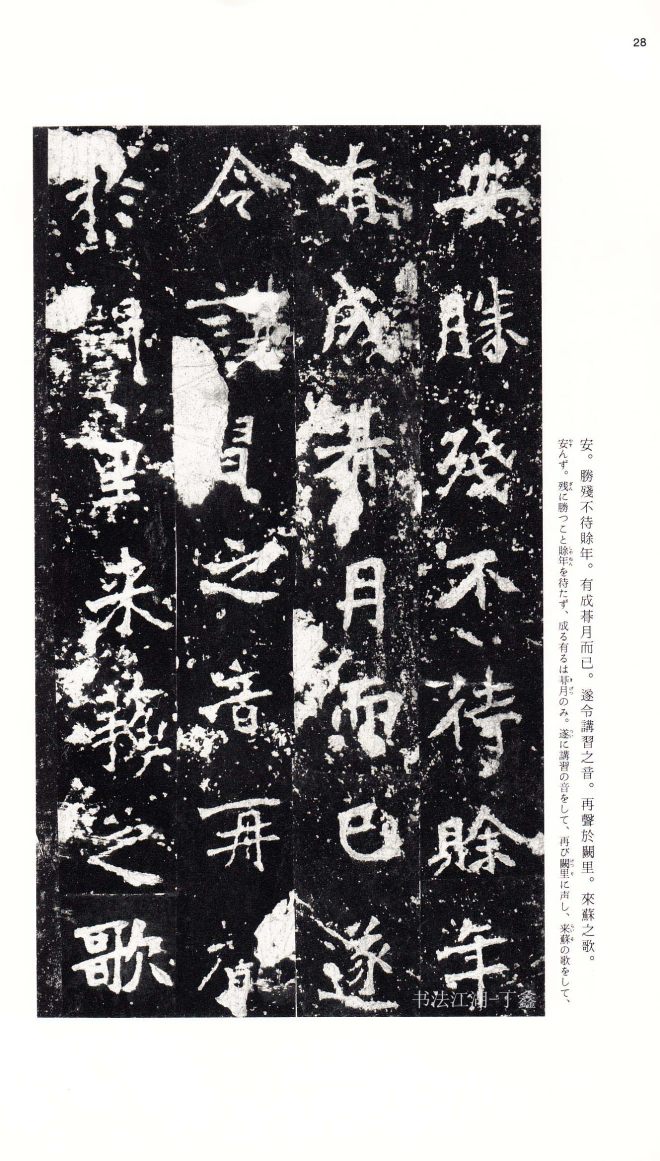 28
安。勝殘不待賖年。有成朞月而已。遂令講習之音。再聲於闕里。來蘇之歌。
安んず。残に勝つこと賖年を待たず、成る有るは朞月のみ。遂に講習の音をして、再び闕里に声し、来蘇の歌をして、
安勝殘不待賖年
有成朞月而已遂
令講習之音再聲
於闕里来蘓之歌
书法江湖-丁鑫